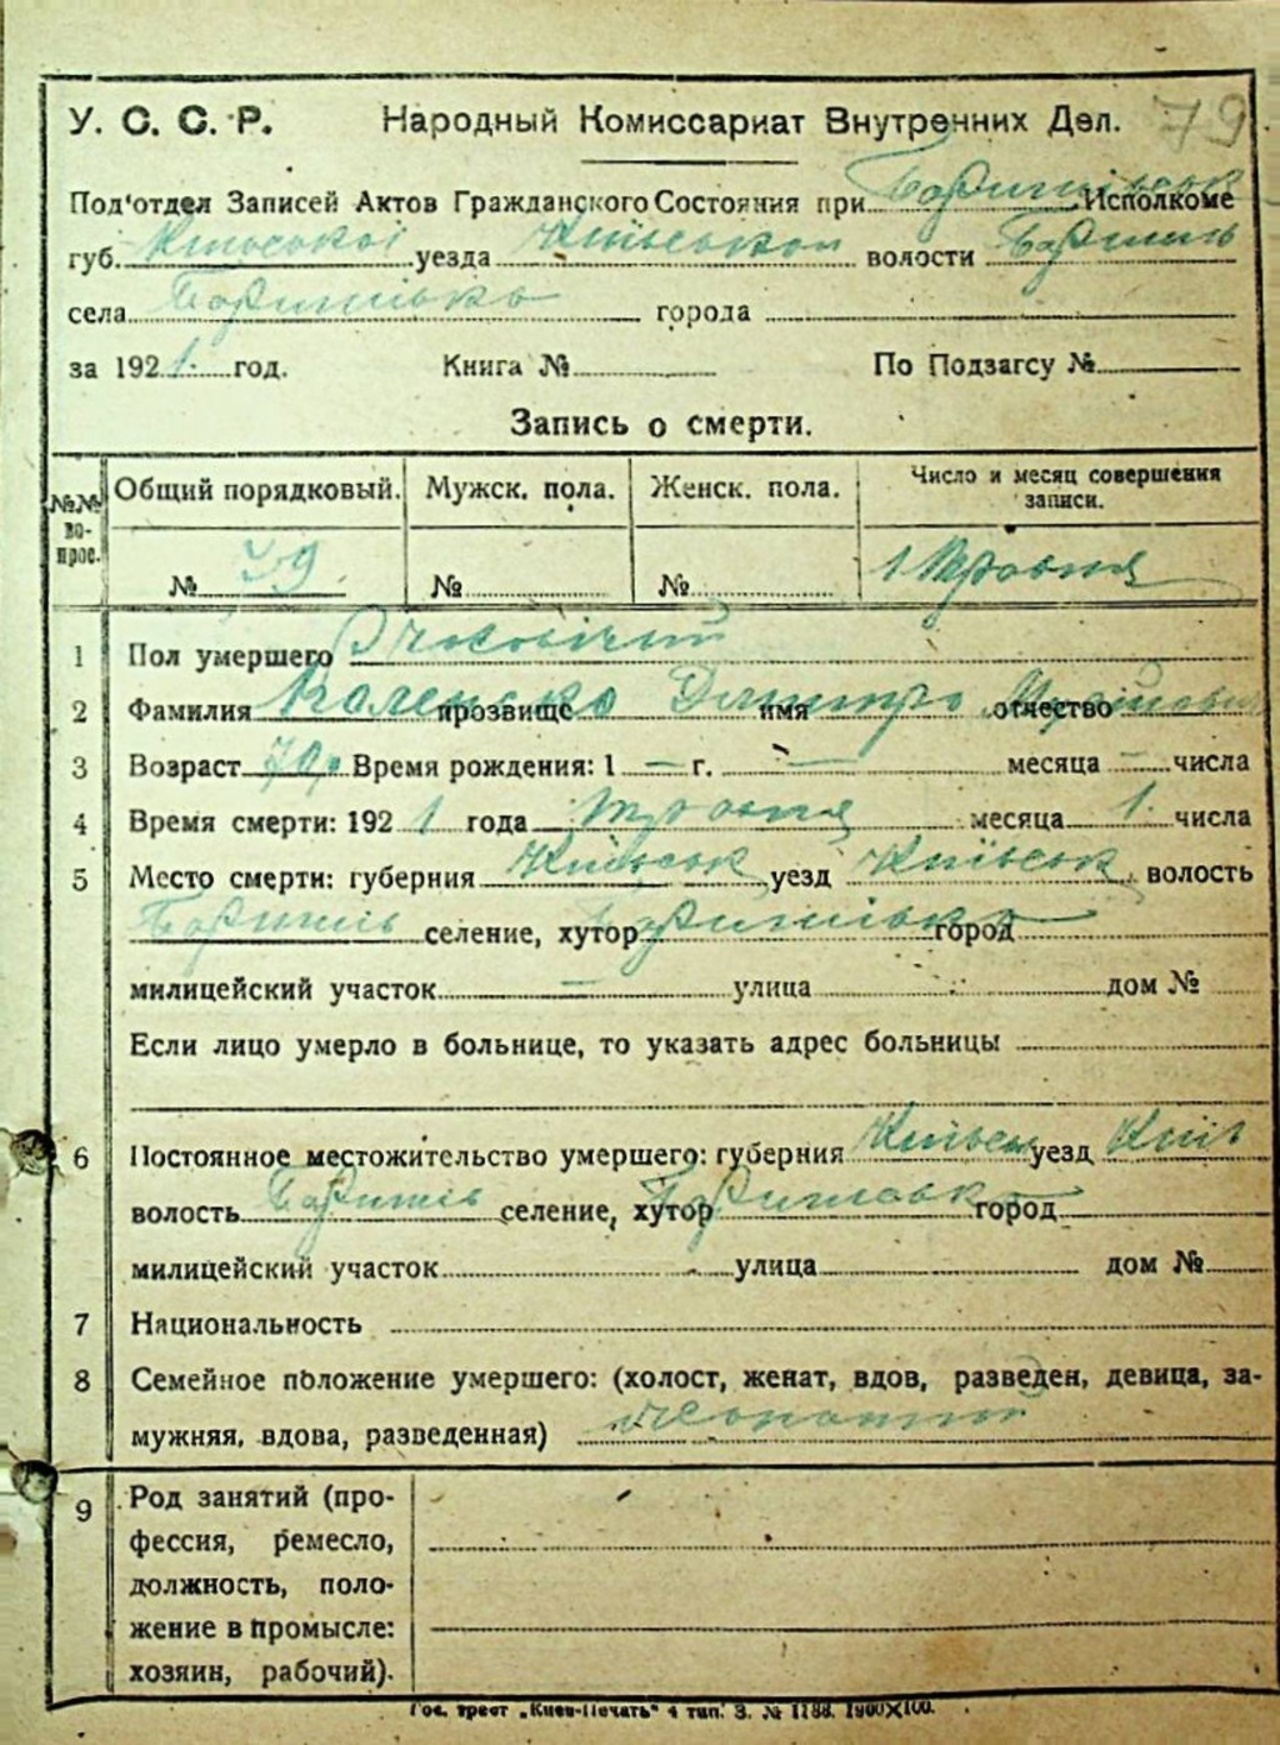 У. С. С. Р. Народный Комиссариат Внутренних Дел. 79
Под'отдел Записей Актов Гражданского Состояния при Исполкоме
губ. уезда волости
села города
за 1921. год. Книга № По Подзагсу №
Запись о смерти.
№№ вопрос. Общий порядковый. Мужск. пола. Женск. пола. Число и месяц совершения записи.
№ № № 1 Травня
1 Пол умершего Чоловічий
2 Фамилия прозвище имя Дмитро отчество
3 Возраст 70 Время рождения: 1 — г. — месяца — числа
4 Время смерти: 1921 года травня месяца 1. числа
5 Место смерти: губерния Київськ уезд Київськ волость
селение, хутор город
милицейский участок — улица дом №
Если лицо умерло в больнице, то указать адрес больницы
6 Постоянное местожительство умершего: губерния уезд Київ
волость селение, хутор город
милицейский участок улица дом №
7 Национальность
8 Семейное положение умершего: (холост, женат, вдов, разведен, девица, за-
мужняя, вдова, разведенная)
9 Род занятий (про-
фессия, ремесло,
должность, поло-
жение в промысле:
хозяин, рабочий).
Гос. трест „Киев-Печать" 4 тип. З. № 1188. 1900×100.